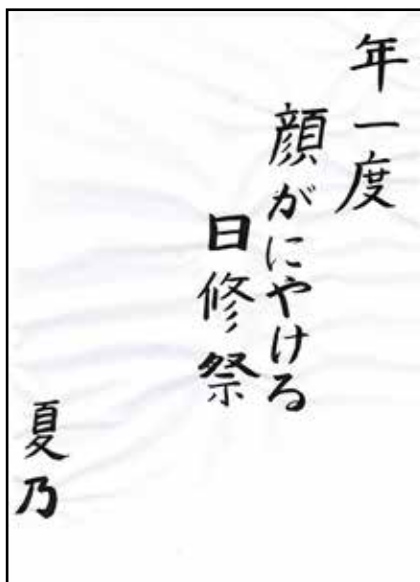 年一度
顔がにやける
日修祭
夏乃